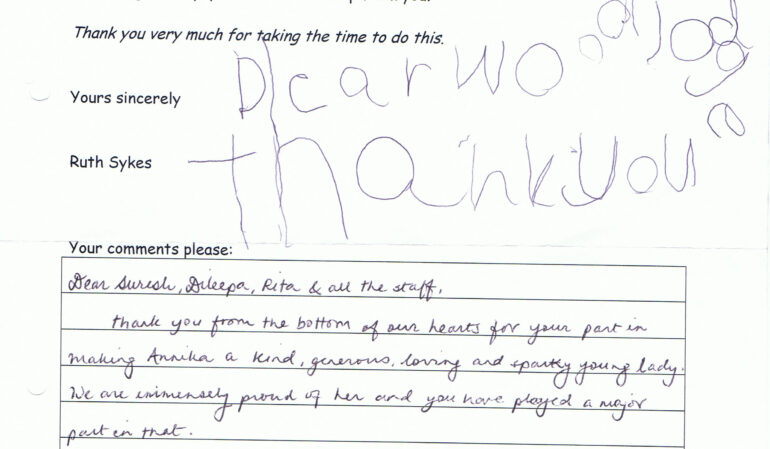 Thank you very much for taking the time to do this.
Dear Wood
Yours sincerely
thank you
Ruth Sykes
Your comments please:
Dear Suresh, Dileepa, Rita & all the staff,
Thank you from the bottom of our hearts for your part in
making Annika a kind, generous, loving and sparky young lady.
We are immensely proud of her and you have played a major
part in that.